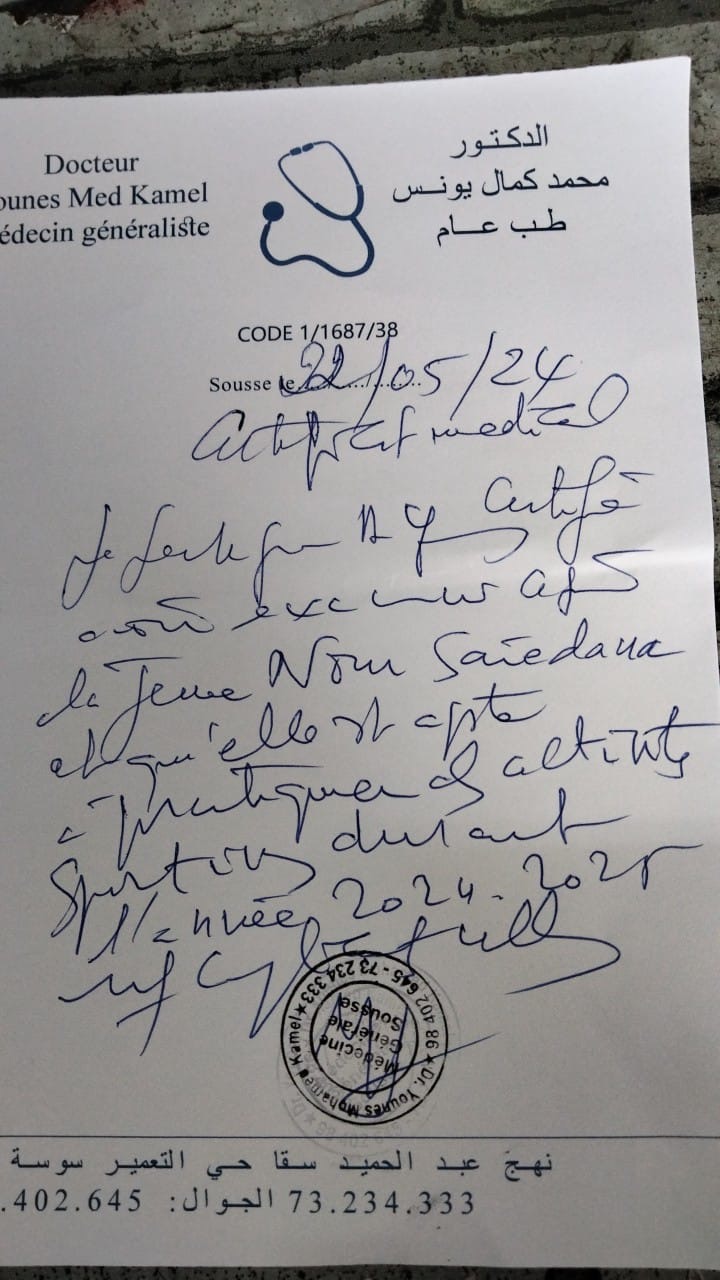 Docteur
ounes Med Kamel
édecin généraliste
الدكتور
محمد كمال يونس
طب عام
CODE 1/1687/38
Sousse le 22/05/24
Certificat medical
Je certifie
avoir examiner
la Jeune Nour Saiedana
et qu'elle est apte
à pratiquer activités
Sportives durant
l'année 2024-2025
Dr. Younes Mohamed Kamel ★ 73 234 333 - 98 402 645 ★
Médecine
Générale
Sousse
نهج عبد الحميد سقا حي التعمير سوسة
73.234.333 الجوال: .402.645